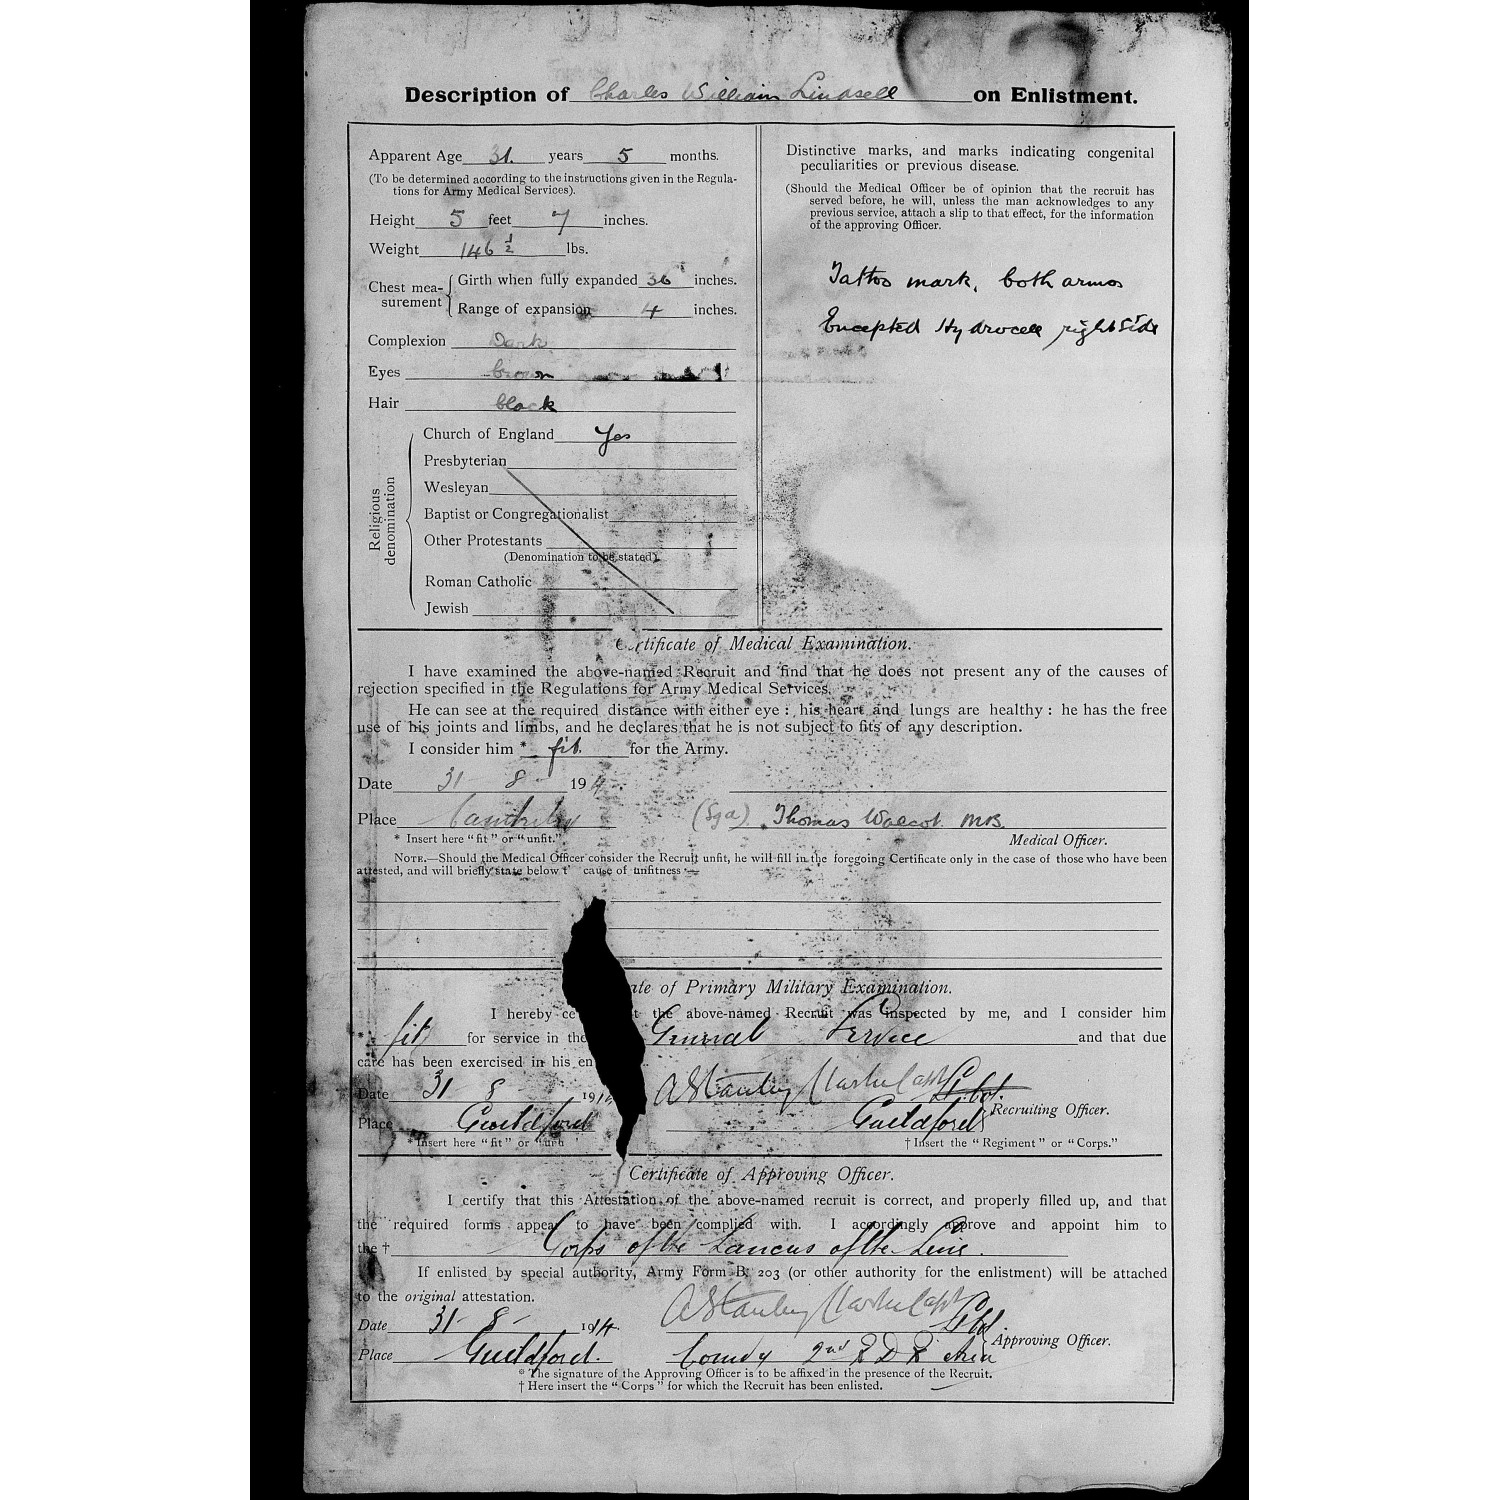 Description of Charles William Lindsell on Enlistment.
Apparent Age 31 years 5 months.
(To be determined according to the instructions given in the Regula-
tions for Army Medical Services).
Height 5 feet 7 inches.
Weight 146 ½ lbs.
Chest mea-
surement
Girth when fully expanded 36 inches.
Range of expansion 4 inches.
Complexion Dark
Eyes brown
Hair black
Religious
denomination
Church of England Yes
Presbyterian
Wesleyan
Baptist or Congregationalist
Other Protestants
(Denomination to be stated).
Roman Catholic
Jewish
Distinctive marks, and marks indicating congenital
peculiarities or previous disease.
(Should the Medical Officer be of opinion that the recruit has
served before, he will, unless the man acknowledges to any
previous service, attach a slip to that effect, for the information
of the approving Officer.
Tattoo mark, both arms
Encepted Hydrocele right side
Certificate of Medical Examination.
I have examined the above-named Recruit and find that he does not present any of the causes of
rejection specified in the Regulations for Army Medical Services.
He can see at the required distance with either eye: his heart and lungs are healthy: he has the free
use of his joints and limbs, and he declares that he is not subject to fits of any description.
I consider him * fit. for the Army.
Date 31 8 - 1914
Place
(Sgd) Thomas Walcot MB.
* Insert here "fit" or "unfit."
Medical Officer.
NOTE.—Should the Medical Officer consider the Recruit unfit, he will fill in the foregoing Certificate only in the case of those who have been
attested, and will briefly state below t cause of unfitness:—
ate of Primary Military Examination.
I hereby ce t the above-named Recruit was inspected by me, and I consider him
* fit for service in the General Service and that due
care has been exercised in his en
Date 31 8 1914 A Stanley Capt
Place Guildford Guildford Recruiting Officer.
* Insert here "fit" or "unfi
† Insert the "Regiment" or "Corps."
Certificate of Approving Officer.
I certify that this Attestation of the above-named recruit is correct, and properly filled up, and that
the required forms appear to have been complied with. I accordingly approve and appoint him to
the † Corps of the Lancers of the Line.
If enlisted by special authority, Army Form B. 203 (or other authority for the enlistment) will be attached
to the original attestation.
Date 31- 8 - 1914. A Stanley Capt
Place Guildford. 2nd Area Approving Officer.
* The signature of the Approving Officer is to be affixed in the presence of the Recruit.
† Here insert the "Corps" for which the Recruit has been enlisted.